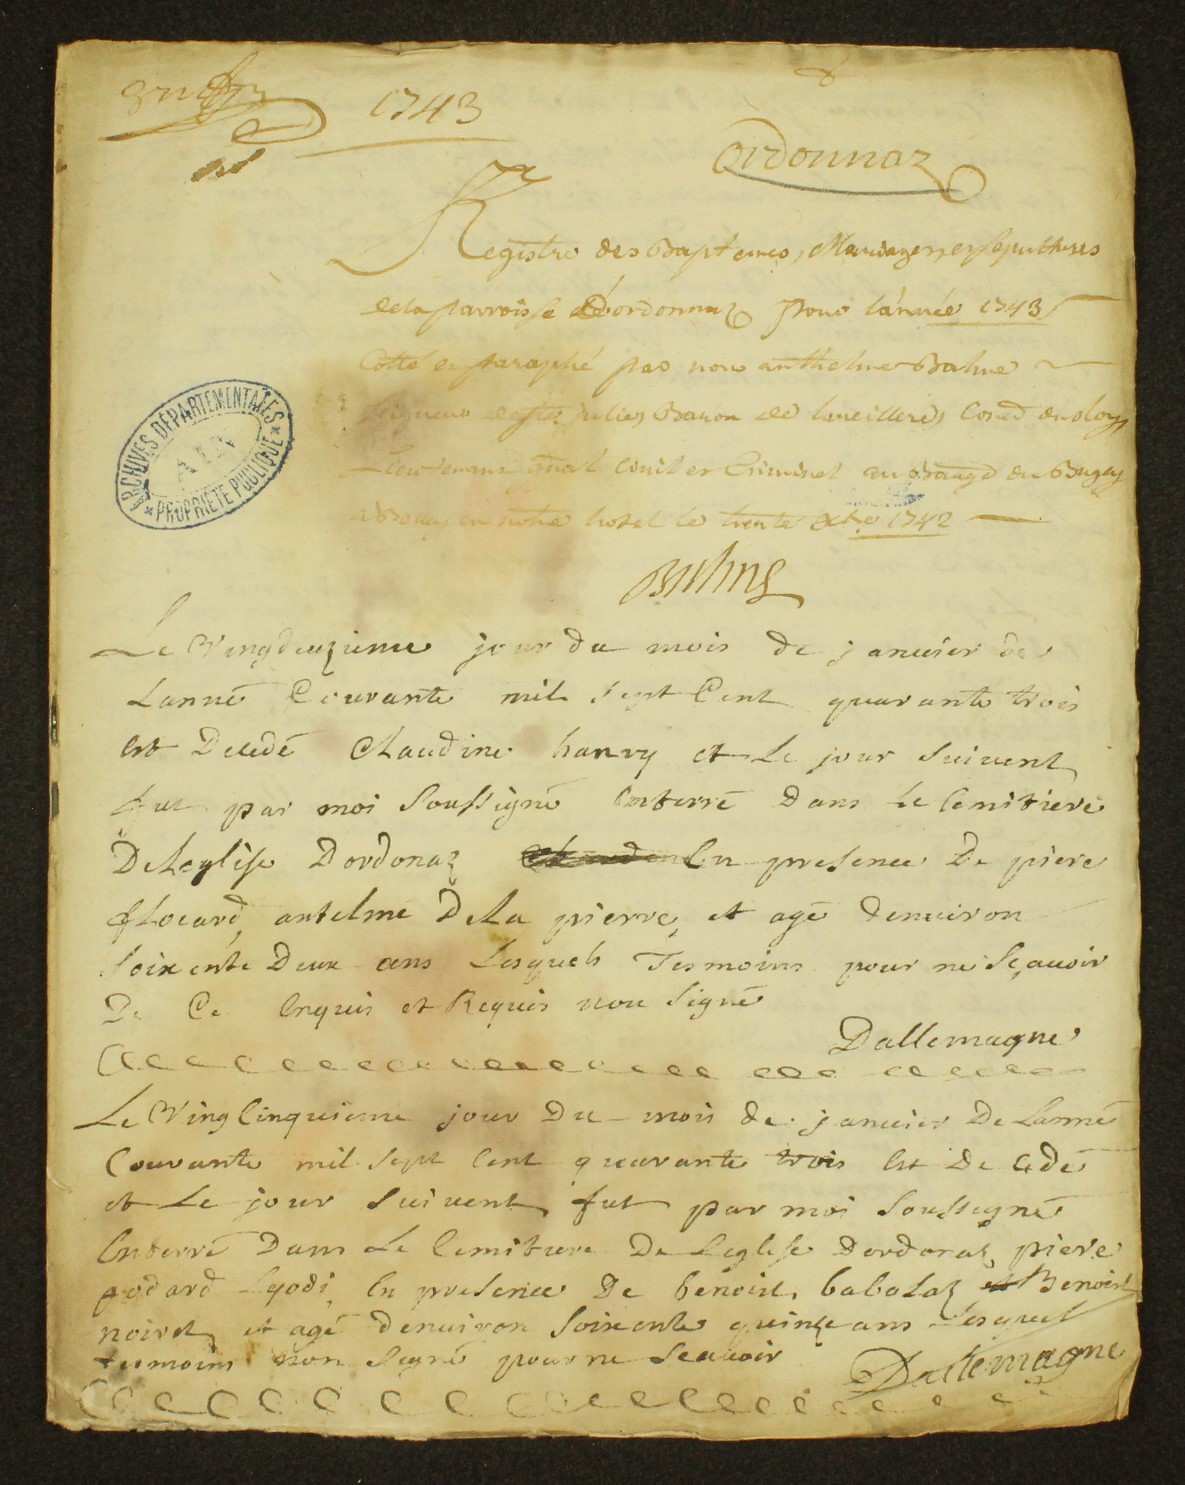 1743
Ordonnaz
Registre des Baptemes, Mariages, et sepultures
de la parroisse d'ordonnaz pour l'année 1743
Cotté et paraphé par nous anthelme Balme
Seigneur de Ste julies Baron de
Lieutenant gnal Civil et Criminel au du Bugey
en notre hotel le trente xbre 1742
Balme
ARCHIVES DÉPARTEMENTALES
AIN
* PROPRIÉTÉ PUBLIQUE *
Le Vingdeuzieme jour du mois de janvier de
Lanné Courante mil sept Cent quarante trois
est Decedé Claudine hanry et Le jour suivent
fut par moi soussigné enterré dans le Cemitiere
De Leglise Dordonaz en presence De piere
flocard, antelme De La pierre, et agé denviron
soixente Deux ans Lesquels Tesmoins pour ne sçavoir
De Ce enquis et Requis non signé
Dallemagne
Le Ving Cinquieme jour Du mois de janvier De Lanné
Courante mil sept Cent quarante trois est De cedé
et Le jour suivent fut par moi soussigné
enterré Dans Le Cemitiere De Leglise Dordonaz piere
godard en presence De benoist babolaz et Benoist
noiret et agé denviron soixente quinze ans Lesquel
tesmoins non signé pour ne sçavoir
Dallemagne